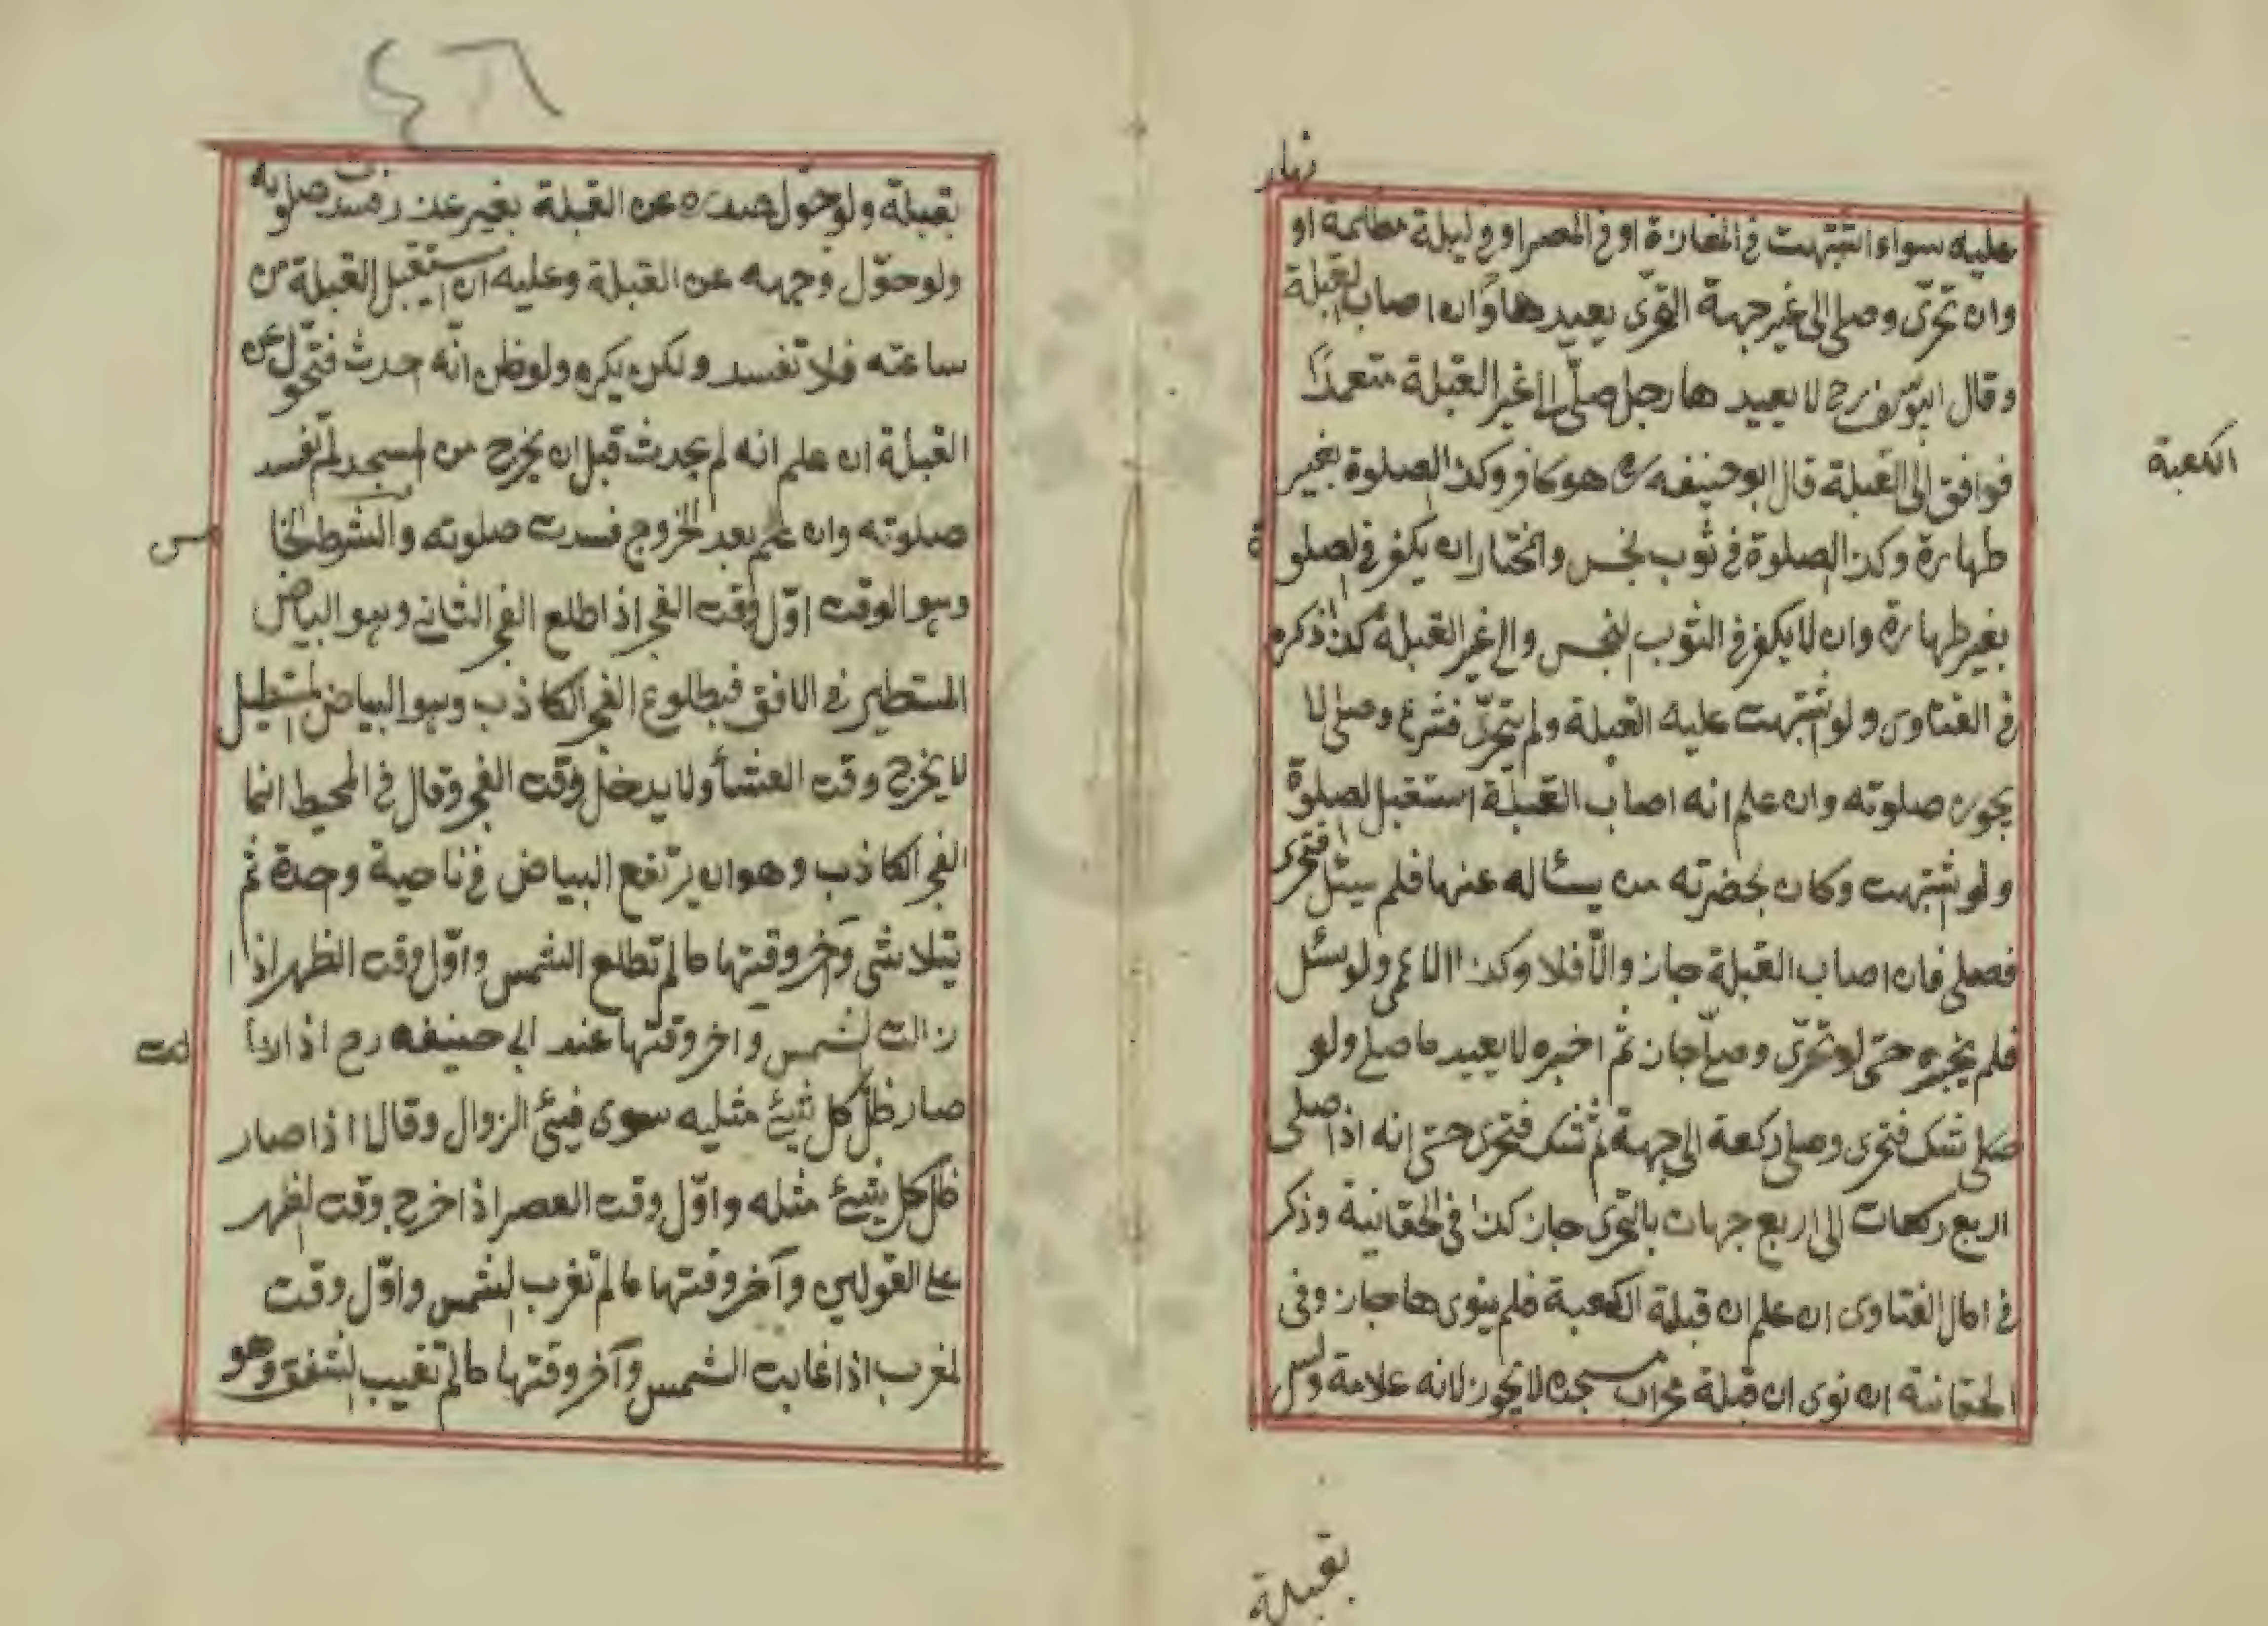 نهار
عليه سواء اشتبهت في المفازة او في المصر او في ليلة مظلمة او
وان تحرّى وصلى الى غير جهة التحرّى يعيدها وان اصاب القبلة
وقال ابو يوسف رح لا يعيدها رجل صلّى الى غير القبلة متعمدًا
فوافق الى القبلة قال ابو حنيفه رح هو كافر وكذا الصلوة بغير
الكعبة
طهارة وكذا الصلوة في ثوب نجس والمختار ان يكفر في الصلوة
بغير طهارة وان لا يكفر في الثوب النجس والى غير القبلة كذا ذكره
في الفتاوى ولو اشتبهت عليه القبلة ولم يتحرّ فشرع وصلى لا
يجوز صلوته وان علم انه اصاب القبلة استقبل الصلوة
ولو اشتبهت وكان بحضرته من يسئاله عنها فلم سيئل فتحرى
فصلى فان اصاب القبلة جاز والّا فلا وكذا الاعمى ولو سئل
فلم يخبره حتى لو تحرّى وصلّى جاز ثم اخبره لا يعيد ما صلى ولو
صلى شك فتحرى وصلى ركعة الى جهة ثم شك فتحرى حتى انه اذا صلى
اربع ركعات الى اربع جهات بالتحرى جاز كذا في الخقانية وذكر
في امال الفتاوى ان علم ان قبلة الكعبة فلم ينوى ها جاز وفى
الخقانية ان نوى ان قبلة محراب مسجده لا يجوز لانه علامة وليس
بقبلة
٤٦
بقبلة ولو حوّل صدره عن القبلة بغير عذر فسدت صلوته
ولو حوّل وجهه عن القبلة وعليه ان يستقبل القبلة من
ساعته فلا تفسد ولكن يكره ولو ظن انّه احدث فتحوّل عن
القبلة ان علم انه لم يحدث قبل ان يخرج من المسجد لم تفسد
صلوته وان علم بعد الخروج فسدت صلوته والشرط الخا
مس
وهو الوقت اوّل وقت الفجر اذا طلع الفجر الثاني وهو البياض
المستطير في الافق فبطلوع الفجر الكاذب وهو البياض المستطيل
لا يخرج وقت العشأ ولا يدخل وقت الفجر وقال في المحيط انما
الفجر الكاذب وهو ان يرتفع البياض في ناحية وحدة ثم
يتلاشى وآخر وقتها ما لم تطلع الشمس واوّل وقت الظهر اذا
زالت الشمس واخر وقتها عند ابي حنيفه رح اذا
صار ظلّ كل شيئ مثليه سوى فيئ الزوال وقالا اذا صار
ظل كل شيئ مثله واوّل وقت العصر اذا خرج وقت الظهر
على القولين وآخر وقتها ما لم تغرب الشمس واوّل وقت
المغرب اذا غابت الشمس وآخر وقتها ما لم تغيب الشفق وهو